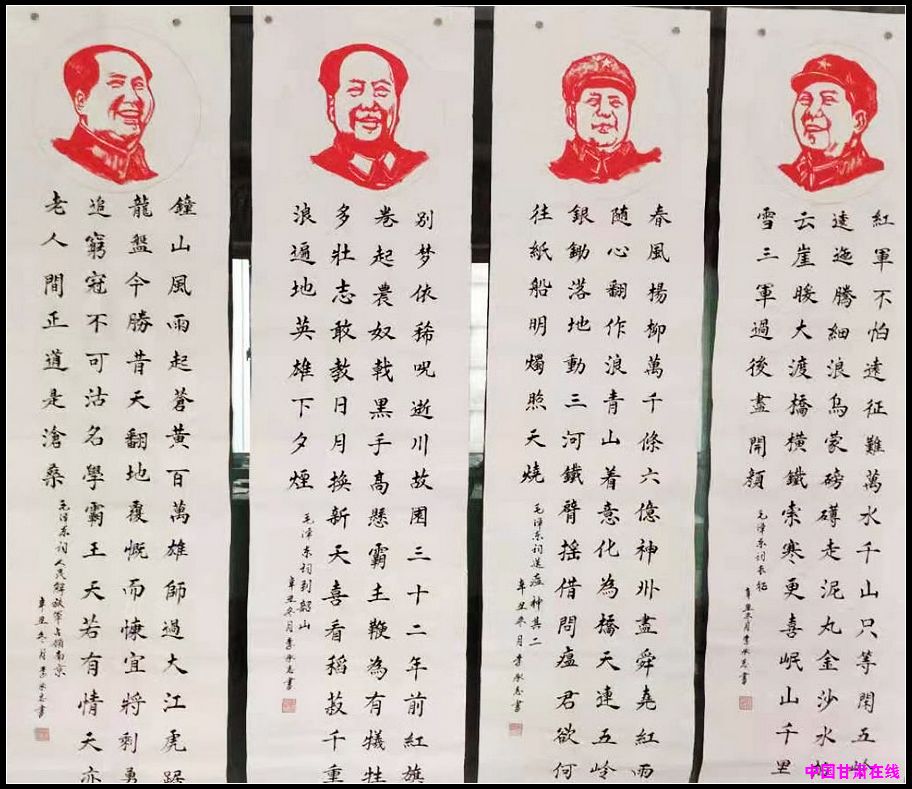 紅軍不怕遠征難萬水千山只等閑五岭
逶迤騰細浪烏蒙磅礴走泥丸金沙水拍
云崖暖大渡橋橫鐵索寒更喜岷山千里
雪三軍過後盡開顏
毛泽东词长征
辛丑冬月李志書
春風楊柳萬千條六億神州盡舜堯紅雨
隨心翻作浪青山着意化為橋天連五岭
銀鋤落地動三河鐵臂摇借問瘟君欲何
往紙船明燭照天燒
毛泽东词送瘟神其二
辛丑冬月李志書
别梦依稀咒逝川故園三十二年前紅旗
卷起農奴戟黑手高懸霸主鞭為有犧牲
多壯志敢教日月換新天喜看稻菽千重
浪遍地英雄下夕煙
毛泽东词到韶山
辛丑冬月李志書
鐘山風雨起蒼黄百萬雄師過大江虎踞
龍盤今勝昔天翻地覆慨而慷宜將剩勇
追窮寇不可沽名學霸王天若有情天亦
老人間正道是滄桑
毛泽东词人民解放军占领南京
辛丑冬月李志書
中国甘肃在线